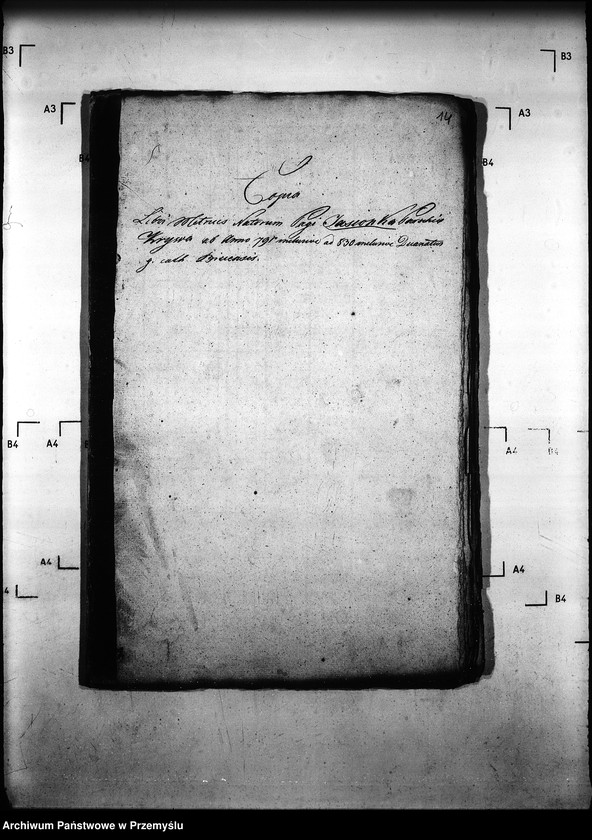 B3
B3
A3
14
A3
B4
B4
Copia
Libri Metrices Natorum Pagi Jasionka Parochia
Krywa ab Anno 791 inclusive ad 830 inclusive Decanatus
g. cath. Biecensis.
B4
A4
B
A4
B4
A4
A4
4
B4
Archiwum Państwowe w Przemyślu